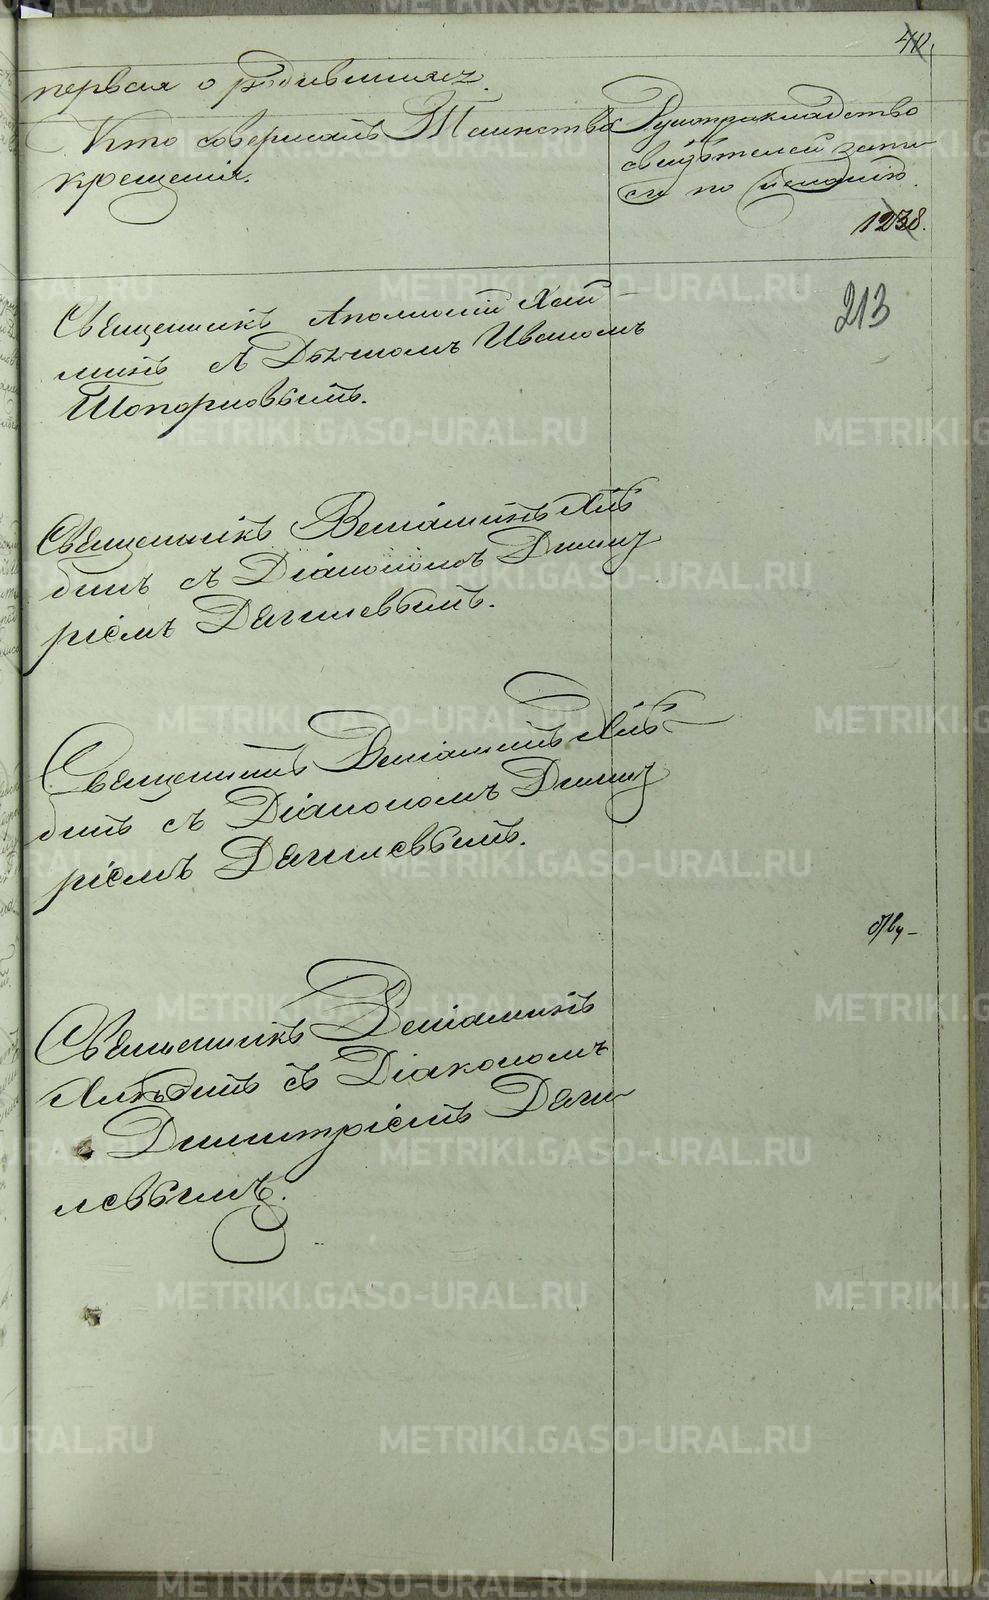 первая о родившихся.
Кто совершалъ Таинство
крещенія.
Рукоприкладство
свидѣтелей запи-
си по желанію.
1238.
213
Священникъ Аполлоній Хол-
минъ съ Дьячкомъ Иваномъ
Топорковымъ.
Священникъ Веніаминъ Хлѣ
бинъ съ Діакономъ Димит
ріемъ Дягилевымъ.
Священникъ Веніаминъ Хлѣ-
бинъ съ Діакономъ Димит
ріемъ Дягилевымъ.
Священникъ Веніаминъ
Хлѣбинъ съ Діакономъ
Димитріемъ Дяги-
левымъ.
METRIKI.GASO-URAL.RU